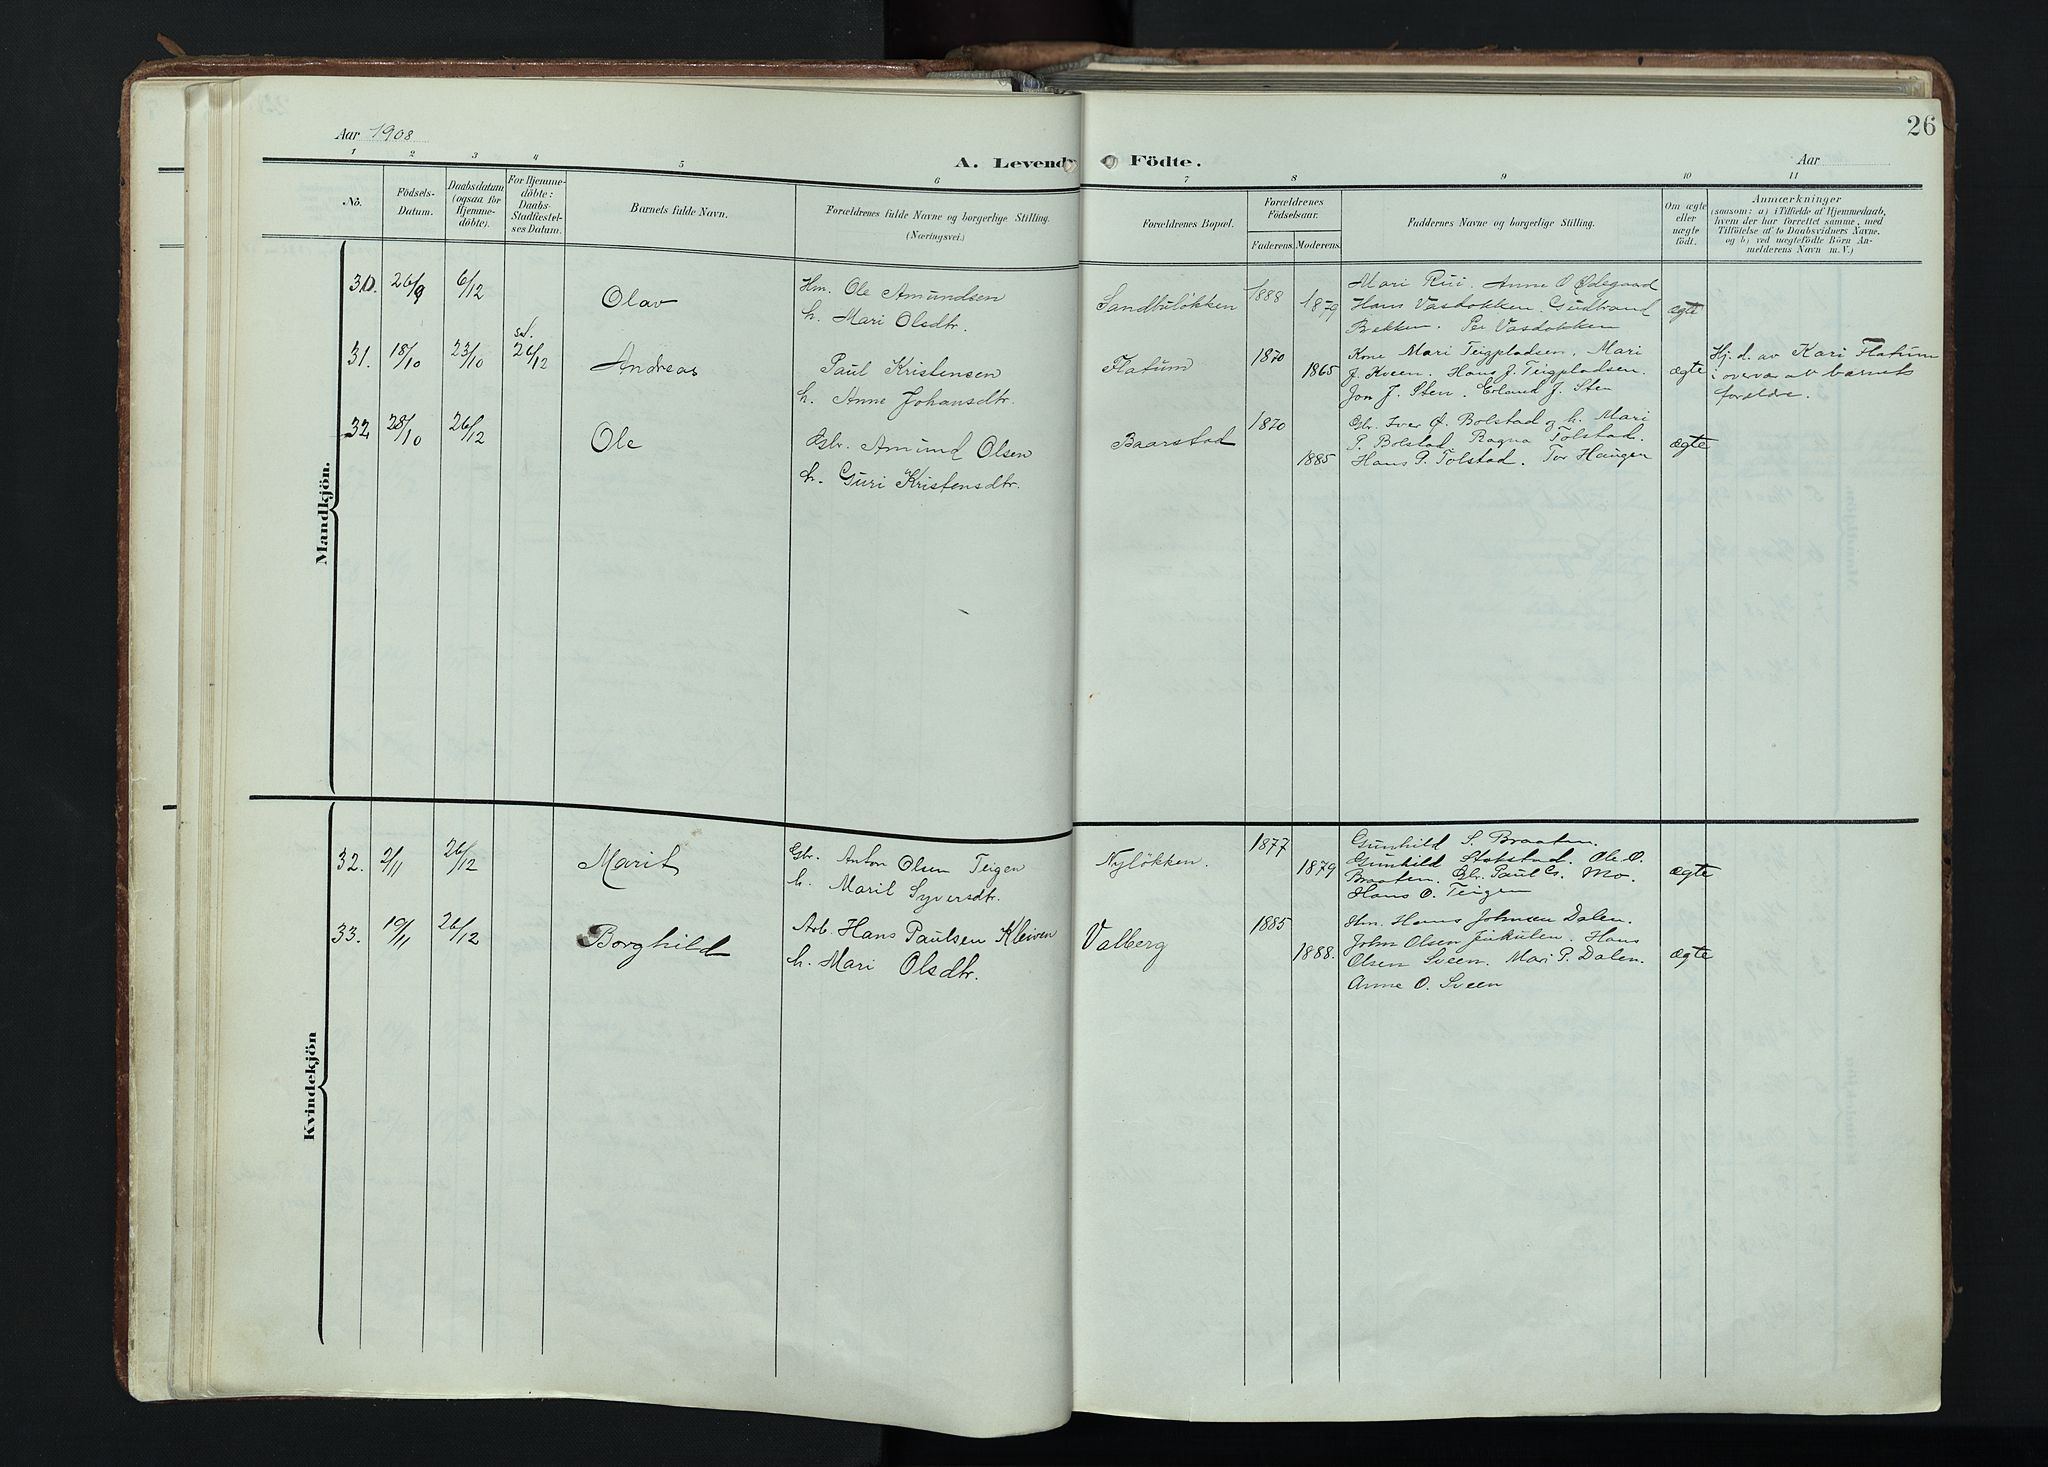 26
Aar 1908
A. Levende Födte.
Aar
1 2 3 4 5 6 7 8 9 10 11
No.
Födsels-
Datum.
Daabsdatum
(ogsaa for
Hjemme-
döbte).
For Hjemme-
döbte:
Daabs-
Stadfæstel-
ses Datum.
Barnets fulde Navn.
Forældrenes fulde Navne og borgerlige Stilling.
(Næringsvei.)
Forældrenes Bopæl.
Forældrenes
Födselsaar.
Faderens. Moderens.
Faddernes Navne og borgerlige Stilling.
Om ægte
eller
uægte
födt.
Anmærkninger
(saasom: a) i Tilfælde af Hjemmedaab,
hvem der har forrettet samme, med
Tilföielse af to Daabsvidners Navne.
og b) ved uægtefödt Börn An-
melderens Navn m. V.)
Mandkjön.
30. 26/9 6/12 Olav
Hm. Ole Amundsen
h. Mari Olsdtr.
Sandbuløkken 1888 1879
Mari Rui. Anne O Ødegaard
Hans Vasdokken. Gudbrand
Bakken. Per Vasdokken
ægte
31. 18/10 23/10 26/12 Andreas
Paul Kristensen
h. Anne Johansdtr.
Flatum 1870 1865
Kone Mari Teigpladsen, Mari
J. Kveen. Hans J. Teigpladsen.
Jon J. Sten. Erland J. Sten
ægte
Hj. d. av Kari Flatum
i overvær av barnets
forældre.
32 28/10 26/12 Ole
Gbr. Amund Olsen
h. Guri Kristensdtr.
Baarstad 1870 1885
Gbr. Iver Ø. Bolstad og h. Mari
P. Bolstad. Ragna Tolstad.
Hans P. Tolstad. Tor Haugen
ægte
Kvindekjön
32. 2/11 26/12 Marit
Gbr. Anton Olsen Teigen
h. Marit Syversdtr.
Nyløkken. 1877 1879
Gunhild S. Braaten.
Gunhild Stokstad. Ole O.
Braaten. Gbr. Paul G. Mo.
Hans O. Teigen
ægte
33. 19/11 26/12 Borghild
Arb. Hans Paulsen Kleiven
h. Mari Olsdtr.
Valberg 1885 1888.
Hm. Hans Johnsen Dalen.
John Olsen Jinkulen. Hans
Olsen Sveen. Mari P. Dalen.
Anne O. Sveen
ægte